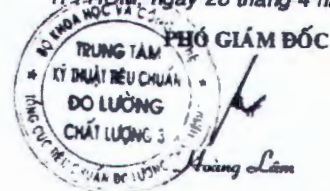 ngày 28 tháng 4 n
PHÓ GIÁM ĐỐC
BỘ KHOA HỌC VÀ C
TRUNG TÂM
KỸ THUẬT TIÊU CHUẨN
ĐO LƯỜNG
CHẤT LƯỢNG 3
TỔNG CỤC TIÊU CHUẨN ĐO LƯỜNG
Hoàng Lâm